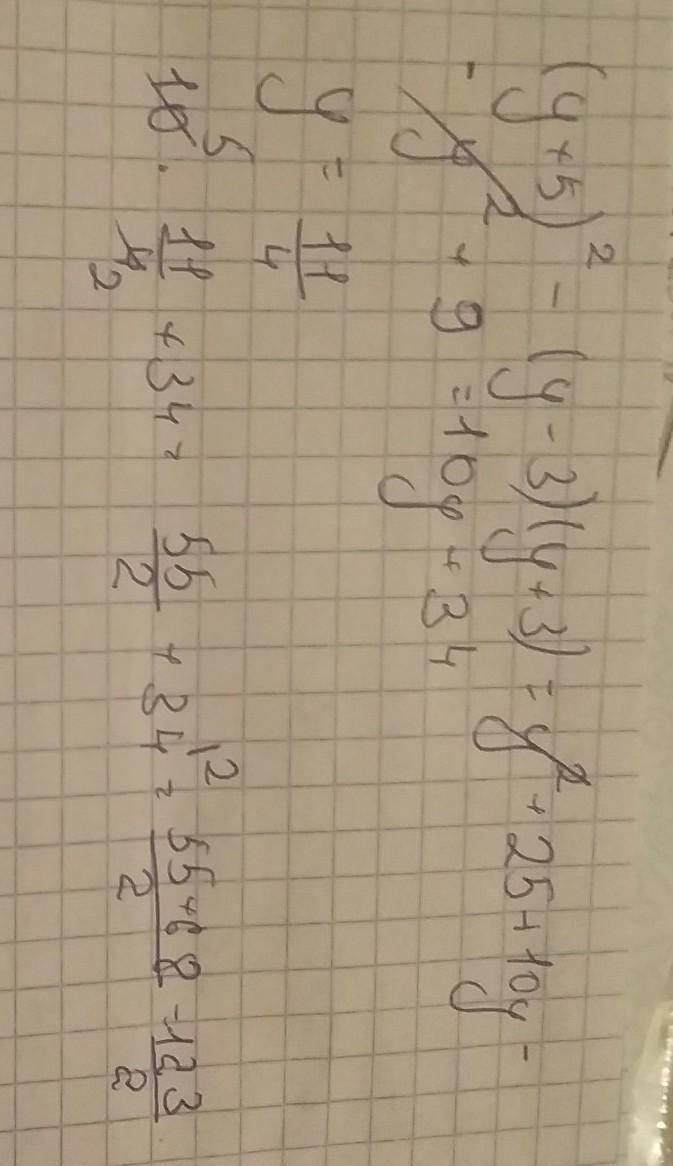 (y+5)² - (y-3)(y+3) = y² + 25 + 10y -
- y² + 9 = 10y + 34
y = 11/4
10 5 · 11/4 2 + 34 = 55/2 + 34 12 = 55+68/2 = 123/2